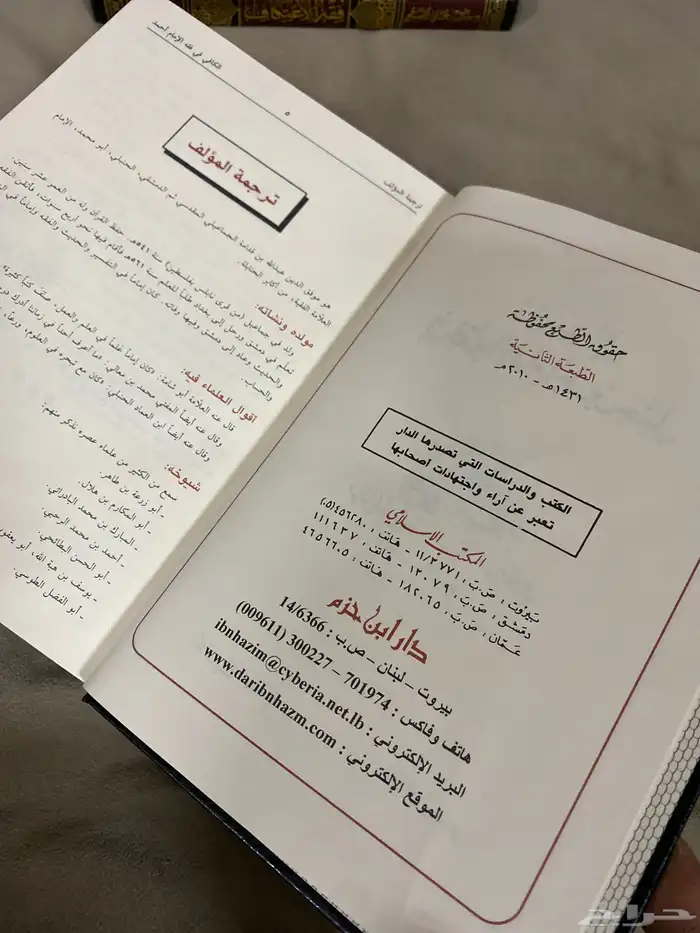 حقوق الطبع محفوظة
الطبعة الثانية
١٤٣١هـ - ٢٠١٠م
الكتب والدراسات التي تصدرها الدار
تعبر عن آراء واجتهادات أصحابها
المكتب الإسلامي
بيروت : ص.ب : ١١/٣٧٧١ - هاتف : ٤٥٦٢٨٠ (٠٥)
دمشق : ص.ب : ١٣٠٧٩ - هاتف : ١١١٦٣٧
عمّان : ص.ب : ١٨٢٠٦٥ - هاتف : ٤٦٥٦٦٠٥
دار ابن حزم
بيروت - لبنان - ص.ب : 14/6366
هاتف وفاكس : 701974 - 300227 (009611)
البريد الإلكتروني : ibnhazim@cyberia.net.lb
الموقع الإلكتروني : www.daribnhazm.com
ترجمة المؤلف
٥
الكافي في فقه الإمام أحمد
ترجمة المؤلف
هو موفق الدين عبدالله بن قدامة الجماعيلي المقدسي ثم الدمشقي، الحنبلي، أبو محمد، الإمام
العلامة الفقيه، من أكابر الحنابلة.
مولده ونشأته:
ولد في جماعيل (من قرى نابلس بفلسطين) سنة ٥٤١هـ. حفظ القرآن وله من العمر عشر سنين.
تعلم في دمشق ورحل إلى بغداد طلباً للعلم سنة ٥٦١هـ فأقام فيها نحو أربع سنوات، فأتقن الفقه
والحديث وعاد إلى دمشق وفيها وفاته. كان إماماً في التفسير والحديث والفقه وإماماً في
والحساب.
أقوال العلماء فيه:
قال عنه العلامة أبو شامة: «كان إماماً عَلَماً في العلم والعمل. صنف كتباً كثيرة»
وقال عنه أيضاً المفتي محمد بن معالي: «ما أعرف أحداً في زماننا أدرك در
وقال عنه أيضاً ابن العماد الحنبلي: «كان مع تبحره في العلوم، ورعاً،
شيوخه:
سمع من الكثير من علماء عصره نذكر منهم:
- أبو زرعة بن طاهر.
- أبو المكارم بن هلال.
- المبارك بن محمد البادرائي.
- أحمد بن محمد الرحبي.
- أبو الحسن البطائحي.
- يوسف بن هبة الله، أبو يعقو
- أبو الفضل الطوسي.
حراج